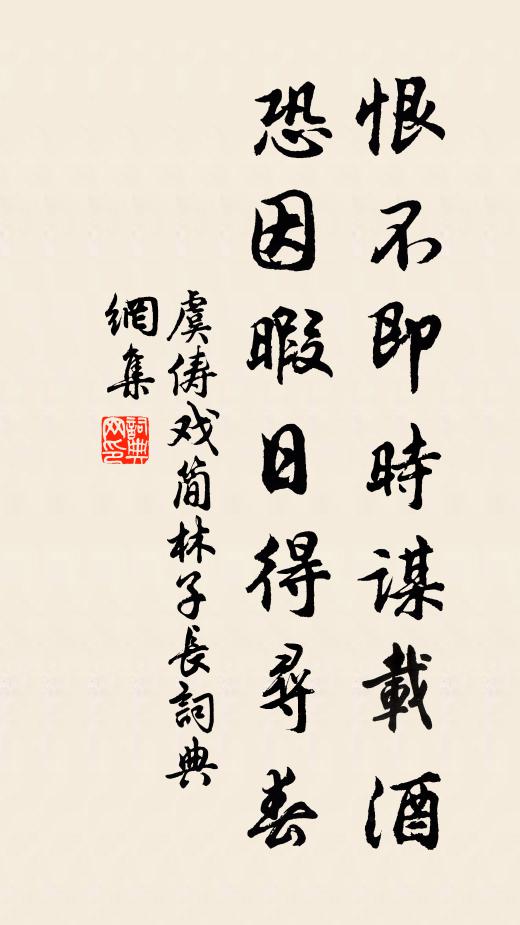 恨不即時謀載酒
恐因暇日得尋春
虞儔戏简林子長詞典
網集
詞典网印